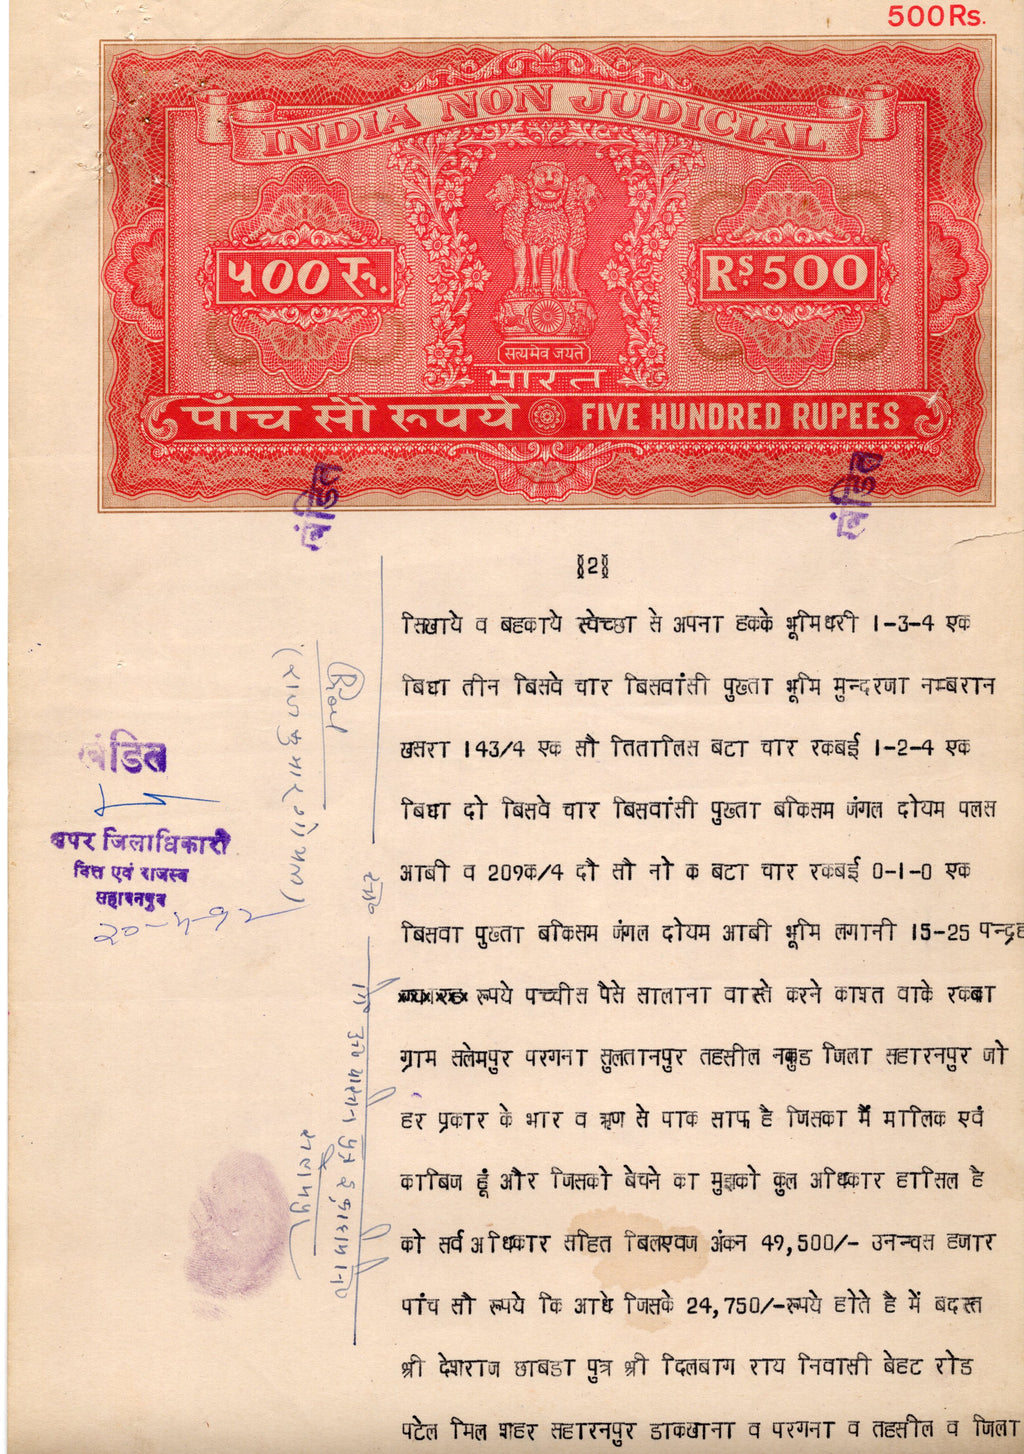 500Rs.
INDIA NON JUDICIAL
५00 रु.
RS.500
सत्यमेव जयते
भारत
पाँच सौ रूपये
FIVE HUNDRED RUPEES
खंडित
खंडित
§2§
सिखाये व बहकाये स्वेच्छा से अपना हकके भूमिधरी 1-3-4 एक
बिघा तीन बिसवे चार बिसवांसी पुख्ता भूमि मुन्दरजा नम्बरान
खसरा 143/4 एक सौ तितालिस बटा चार रकबई 1-2-4 एक
बिघा दो बिसवे चार बिसवांसी पुख्ता बकिसम जंगल दोयम पलस
आबी व 209क/4 दौ सौ नो क बटा चार रकबई 0-1-0 एक
बिसवा पुख्ता बकिसम जंगल दोयम आबी भूमि लगानी 15-25 पन्द्रह
रूपये पच्चीस पैसे सालाना वास्ते करने काश्त वाके रकबा
ग्राम सलेमपुर परगना सुलतानपुर तहसील नकुड जिला सहारनपुर जो
हर प्रकार के भार व ऋण से पाक साफ है जिसका मैं मालिक एवं
काबिज हूं और जिसको बेचने का मुझको कुल अधिकार हासिल है
को सर्व अधिकार सहित बिलएवज अंकन 49,500/- उनन्चस हजार
पांच सौ रूपये कि आधे जिसके 24,750/-रूपये होते है में बदस्त
श्री देशराज छाबडा पुत्र श्री दिलबाग राय निवासी बेहट रोड
पटेल मिल शहर सहारनपुर डाकखाना व परगना व तहसील व जिला
खंडित
अपर जिलाधिकारी
वित्त एवं राजस्व
सहारनपुर
२०-५-९२